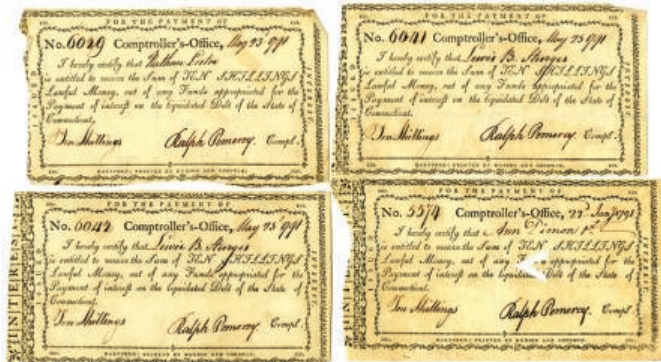 FOR THE PAYMENT OF
No. 6029 Comptroller's-Office, May 25 1791
I hereby certify that
is entitled to receive the Sum of TEN SHILLINGS
Lawful Money, out of any Funds appropriated for the
Payment of interest on the liquidated Debt of the State of
Connecticut.
Ten Shillings Ralph Pomeroy. Compt.
ISSUED
INTEREST
FOR THE PAYMENT OF
No. 6041 Comptroller's-Office, May 25 1791
I hereby certify that Lewis B. Sturges
is entitled to receive the Sum of TEN SHILLINGS
Lawful Money, out of any Funds appropriated for the
Payment of interest on the liquidated Debt of the State of
Connecticut.
Ten Shillings Ralph Pomeroy. Compt.
FOR THE PAYMENT OF
No. 6042 Comptroller's-Office, May 25 1791
I hereby certify that Lewis B. Sturges
is entitled to receive the Sum of TEN SHILLINGS
Lawful Money, out of any Funds appropriated for the
Payment of interest on the liquidated Debt of the State of
Connecticut.
Ten Shillings Ralph Pomeroy. Compt.
INTEREST
FOR THE PAYMENT OF
No. 5574 Comptroller's-Office, 22d Jany 1791
I hereby certify that Ann Dimon
is entitled to receive the Sum of TEN SHILLINGS
Lawful Money, out of any appropriated for the
Payment of interest on the liquidated Debt of the State of
Connecticut.
Ten Shillings Ralph Pomeroy. Compt.